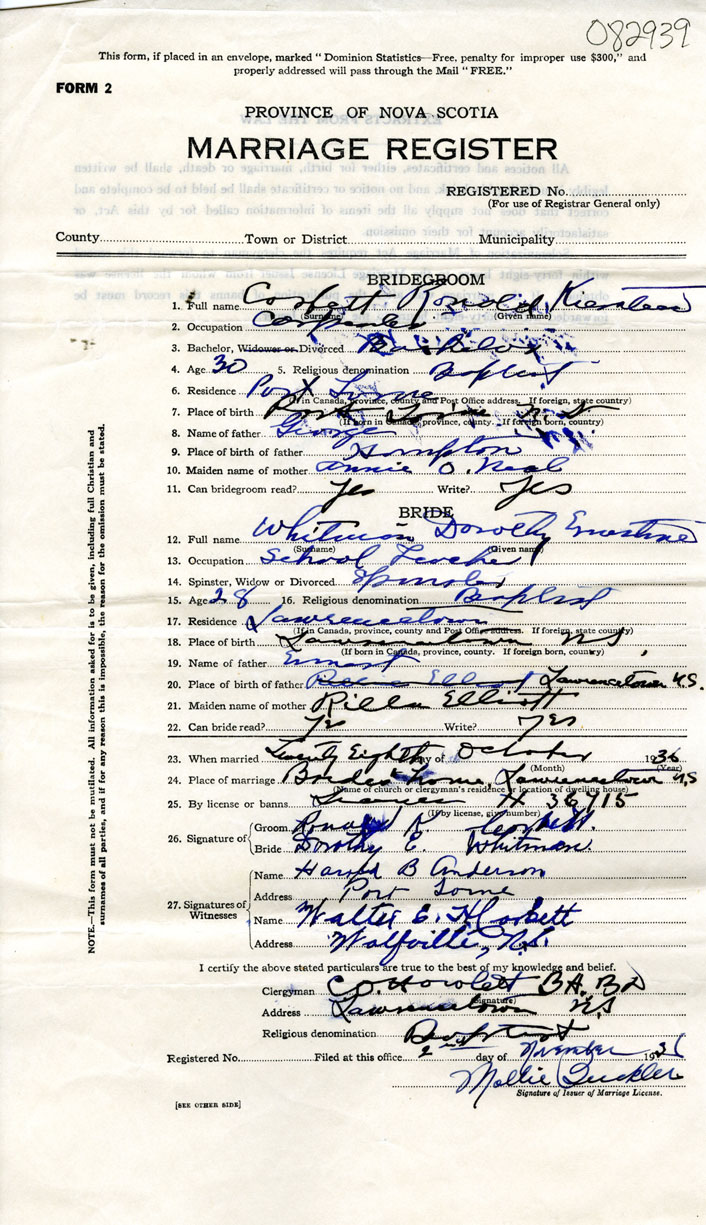 082939
This form, if placed in an envelope, marked "Dominion Statistics—Free, penalty for improper use $300," and
properly addressed will pass through the Mail "FREE."
FORM 2
PROVINCE OF NOVA SCOTIA
MARRIAGE REGISTER
REGISTERED No.
(For use of Registrar General only)
County Town or District Municipality
BRIDEGROOM
1. Full name Corbett Ronald Kinsman
(Surname) (Given name)
2. Occupation Carpenter
3. Bachelor, Widower or Divorced Bachelor
4. Age 30 5. Religious denomination Baptist
6. Residence Port Lorne
(If in Canada, province, county and Post Office address. If foreign, state country)
7. Place of birth Port Lorne N.S
(If born in Canada, province, county. If foreign born, country)
8. Name of father George
9. Place of birth of father Hampton
10. Maiden name of mother Annie O. Neal
11. Can bridegroom read? Yes Write? Yes
BRIDE
12. Full name Whitman Dorothy Ernestine
(Surname) (Given name)
13. Occupation School Teacher
14. Spinster, Widow or Divorced Spinster
15. Age 28 16. Religious denomination Baptist
17. Residence Lawrencetown
(If in Canada, province, county and Post Office address. If foreign, state country)
18. Place of birth Lawrencetown N.S,
(If born in Canada, province, county. If foreign born, country)
19. Name of father Ernest
20. Place of birth of father Rilla Elliott Lawrencetown N.S.
21. Maiden name of mother Rilla Elliott
22. Can bride read? Yes Write? Yes
23. When married Twenty Eighth day of October 1936
(Month) (Year)
24. Place of marriage Brides home, Lawrencetown N.S
(Name of church or clergyman's residence or location of dwelling house)
25. By license or banns License # 36715
(If by license, give number)
26. Signature of Groom Ronald K Corbett.
Bride Dorothy E. Whitman.
27. Signatures of Witnesses Name Harold B Anderson
Address Port Lorne
Name Walter E. H Corbett
Address Wolfville, N.S.
I certify the above stated particulars are true to the best of my knowledge and belief.
Clergyman C.O. Howlett B.A. B.D
(Signature)
Address Lawrencetown N.S
Religious denomination Baptist
Registered No. Filed at this office 2nd day of November 1936
Mollie
Signature of Issuer of Marriage License.
[SEE OTHER SIDE]
NOTE.—This form must not be mutilated. All information asked for is to be given, including full Christian and
surnames of all parties, and if for any reason this is impossible, the reason for the omission must be stated.